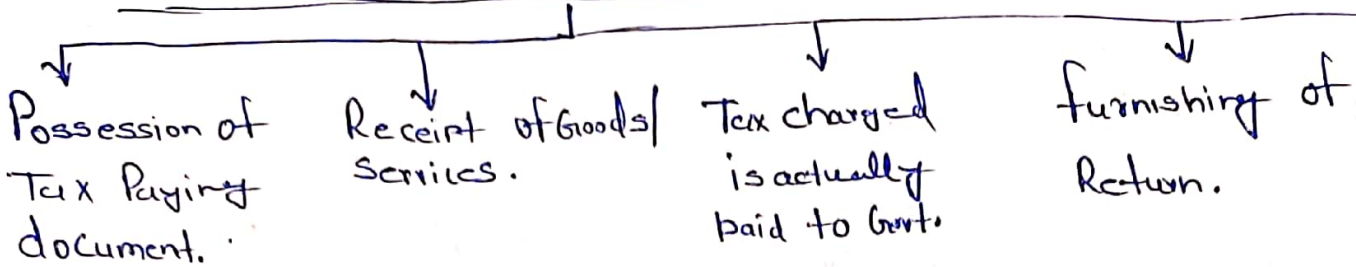 Possession of
Tax Paying
document.
Receipt of Goods/
Services.
Tax charged
is actually
paid to Govt.
furnishing of
Return.